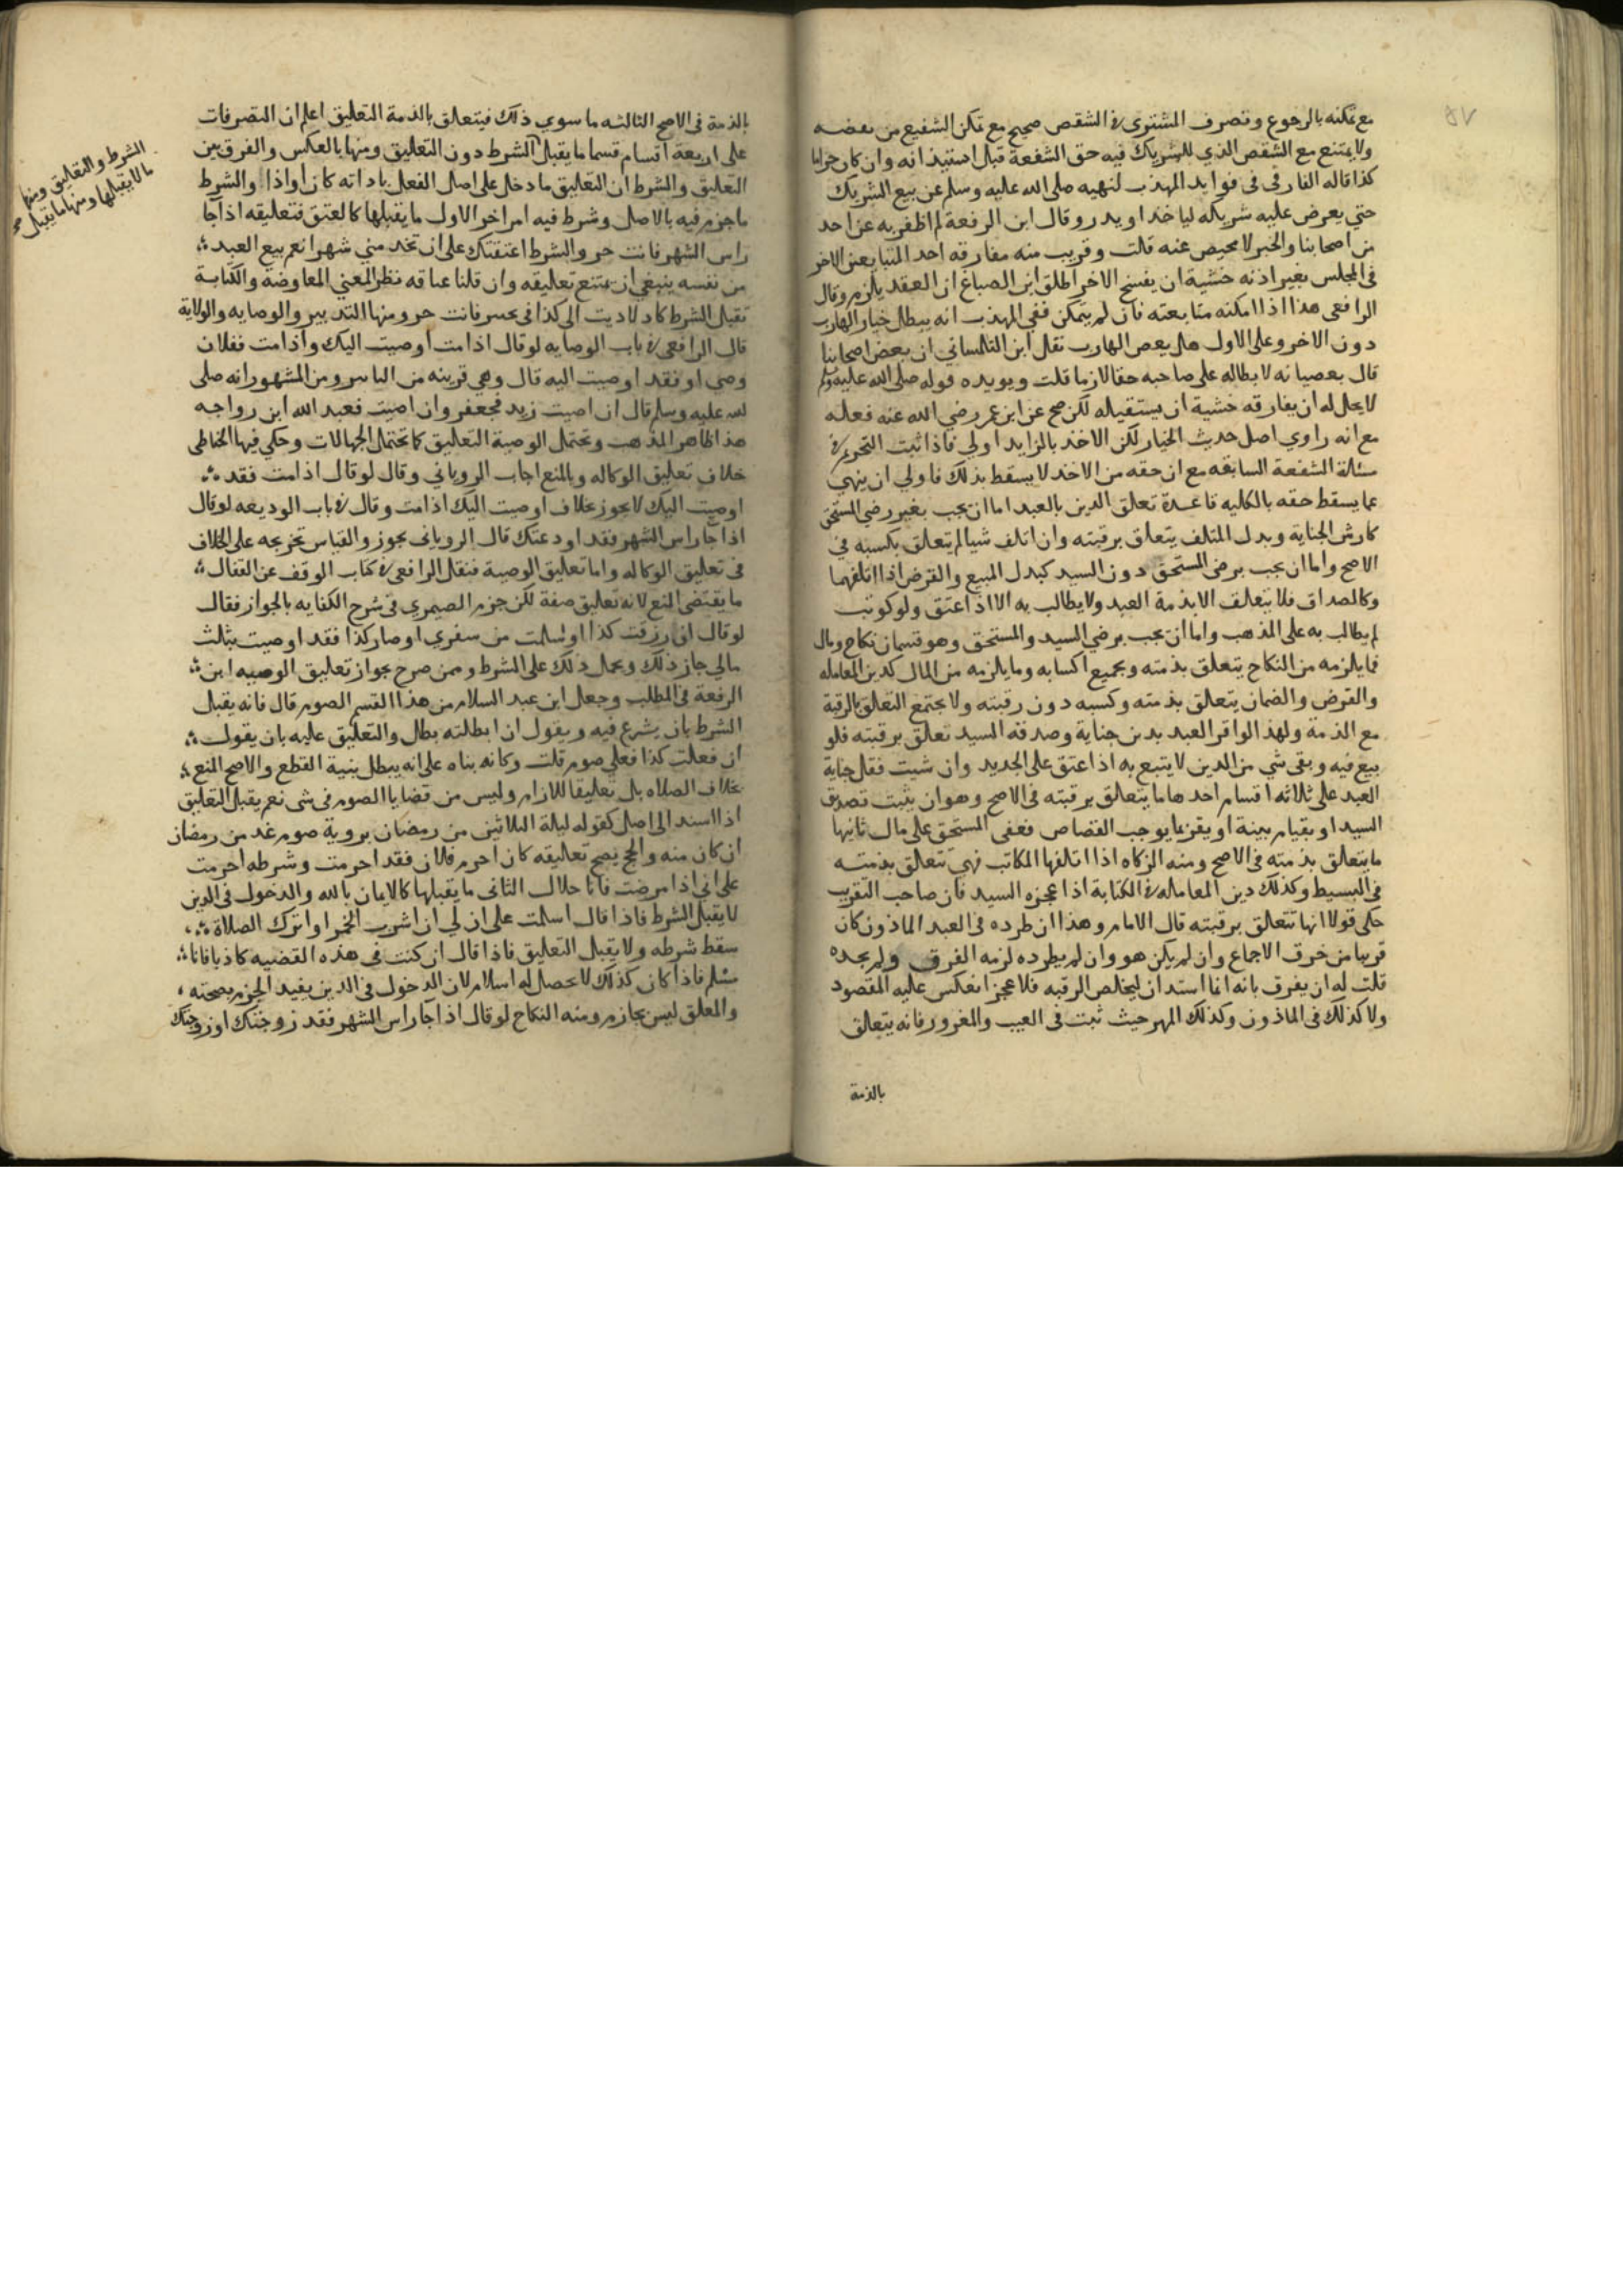 مع تمكنه بالرجوع وتصرف المشترى فى الشقص صحيح مع تمكن الشفيع من نقضه
ولا يمتنع مع الشقص الذي للشريك فيه حق الشفعة قبل استيذانه وان كان حراما
كذا قاله الفارقى فى فوايد المهذب لنهيه صلى الله عليه وسلم عن بيع الشريك
حتي يعرض عليه شريكه لياخذ او يدر وقال ابن الرفعة لم اظفر به عن احد
من اصحابنا والخبر لا محيص عنه قلت وقريب منه مفارقه احد المتبايعين الاخر
فى المجلس بغير اذنه خشية ان يفسخ الاخر اطلق ابن الصباغ ان العقد يلزم وقال
الرافعى هذا اذا امكنه متابعته فان لم يتمكن ففي المهذب انه يبطل خيار الهارب
دون الاخر وعلى الاول هل يعصي الهارب نقل ابن التلمساني ان بعض اصحابنا
قال بعصيانه لابطاله على صاحبه حقا لازما قلت ويويده قوله صلى الله عليه وسلم
لا يحل له ان يفارقه خشية ان يستقيله لكن صح عن ابن عمر رضي الله عنه فعله
مع انه راوي اصل حديث الخيار لكن الاخذ بالزايد اولي فاذا ثبت التحريم فى
مسئلة الشفعة السابقه مع ان حقه من الاخذ لا يسقط بذلك فاولي ان ينهي
عما يسقط حقه بالكليه قاعدة تعلق الدين بالعبد اما ان يجب بغير رضي المستحق
كارش الجناية وبدل المتلف يتعلق برقبته وان اتلف شيا لم يتعلق بكسبه في
الاصح واما ان يجب برضى المستحق دون السيد كبدل المبيع والقرض اذا اتلفهما
وكالصداق فلا يتعلق الا بذمة العبد ولا يطالب به الا اذا عتق ولو كوتب
لم يطالب به على المذهب واما ان يجب برضي السيد والمستحق وهو قسمان نكاح ومال
فما يلزمه من النكاح يتعلق بذمته وبجميع اكسابه وما يلزمه من المال كدين المعامله
والقرض والضمان يتعلق بذمته وكسبه دون رقبته ولا يجتمع التعلق بالرقبة
مع الذمة ولهذا لو اقر العبد بدين جناية وصدقه السيد تعلق برقبته فلو
بيع فيه وبقى شي من الدين لا يتبع به اذا عتق على الجديد وان شيت فقل جناية
العبد على ثلاثه اقسام احدها ما يتعلق برقبته فى الاصح وهو ان يثبت تصديق
السيد او بقيام بينة او يقر بما يوجب القصاص فعفى المستحق على مال ثانيها
ما يتعلق بذمته فى الاصح ومنه الزكاه اذا اتلفها المكاتب فهي تتعلق بذمته
فى البسيط وكذلك دين المعامله فى الكتابة اذا عجزه السيد فان صاحب التقريب
حكى قولا انها تتعلق برقبته قال الامام وهذا ان طرده فى العبد الماذون كان
قريبا من خرق الاجماع وان لم يكن هو وان لم يطرده لزمه الفرق ولم يجده
قلت له ان يفرق بانه انما استدان ليخلص الرقبه فلما عجز انعكس عليه المقصود
ولا كذلك فى الماذون وكذلك المهر حيث ثبت فى العيب والغرور فانه يتعلق
بالذمة
بالذمة فى الاصح الثالثه ما سوي ذلك فيتعلق بالذمة التعليق اعلم ان التصرفات
على اربعة اقسام قسما ما يقبل الشرط دون التعليق ومنها بالعكس والفرق بين
التعليق والشرط ان التعليق ما دخل على اصل الفعل باداته كان او اذا والشرط
ما جزم فيه بالاصل وشرط فيه امر اخر الاول ما يقبلها كالعتق فتعليقه اذا جا
راس الشهر فانت حر والشرط اعتقتك على ان تخدمني شهرا نعم بيع العبد
من نفسه ينبغي ان يمتنع تعليقه وان قلنا عتاقه نظر المعني المعاوضه والكتابة
تقبل الشرط كاد لاديت الى كذا فى عسر فانت حر ومنها التدبير والوصايه والولاية
قال الرافعى فى باب الوصايه لو قال اذا مت اوصيت اليك واذا مت ففلان
وصى او فقد اوصيت اليه قال وهي قريبه من التامير ومن المشهور انه صلى
لله عليه وسلم قال ان اصيت زيد فجعفر وان اصيب فعبد الله ابن رواحه
هذا ظاهر المذهب وتحتمل الوصية التعليق كما تحتمل الجهالات وحكي فيها الحناطى
خلاف تعليق الوكاله وبالمنع اجاب الروياني وقال لو قال اذا مت فقد
اوصيت اليك لا يجوز بخلاف اوصيت اليك اذا مت وقال فى باب الوديعه لو قال
اذا جا راس الشهر فقد اودعتك قال الرويانى يجوز والقياس تخريجه على الخلاف
فى تعليق الوكاله واما تعليق الوصية فنقل الرافعى فى كتاب الوقف عن القفال
ما يقتضى المنع لانه تعليق صفة لكن جزم الصيمري فى شرح الكفايه بالجواز فقال
لو قال ان رزقت كذا او سلمت من سفري او صار كذا فقد اوصيت بثلث
مالي جاز ذلك ويحمل ذلك على الشرط وممن صرح بجواز تعليق الوصيه ابن
الرفعة فى المطلب وجعل ابن عبد السلام من هذا القسم الصوم قال فانه يقبل
الشرط بان يشرع فيه ويقول ان ابطلته بطل والتعليق عليه بان يقول
ان فعلت كذا فعلي صوم قلت وكانه بناه على انه يبطل بنية القطع والاصح المنع
بخلاف الصلاه بل تعليقا للالزام وليس من قضايا الصوم فى شى نعم يقبل التعليق
اذا اسند الى اصل كقوله ليلة الثلاثين من رمضان بروية صوم غد من رمضان
ان كان منه والحج يصح تعليقه كان احرم فلان فقد احرمت وشرطه احرمت
على انى اذا مرضت فانا حلال الثانى ما يقبلها كالايمان بالله والدخول فى الدين
لا يقبل الشرط فاذا قال اسلمت على ان لي ان اشرب الخمر او اترك الصلاة
سقط شرطه ولا يقبل التعليق فاذا قال ان كنت فى هذه القضيه كاذبا فانا
مسلم فاذا كان كذلك لا يحصل له اسلام لان الدخول فى الدين يفيد الجزم بصحته
والمعلق ليس بجازم ومنه النكاح لو قال اذا جا راس الشهر فقد زوجتك او زوجتك
الشرط والتعليق ومنها
ما لا يقبلها ومنها ما يقبل